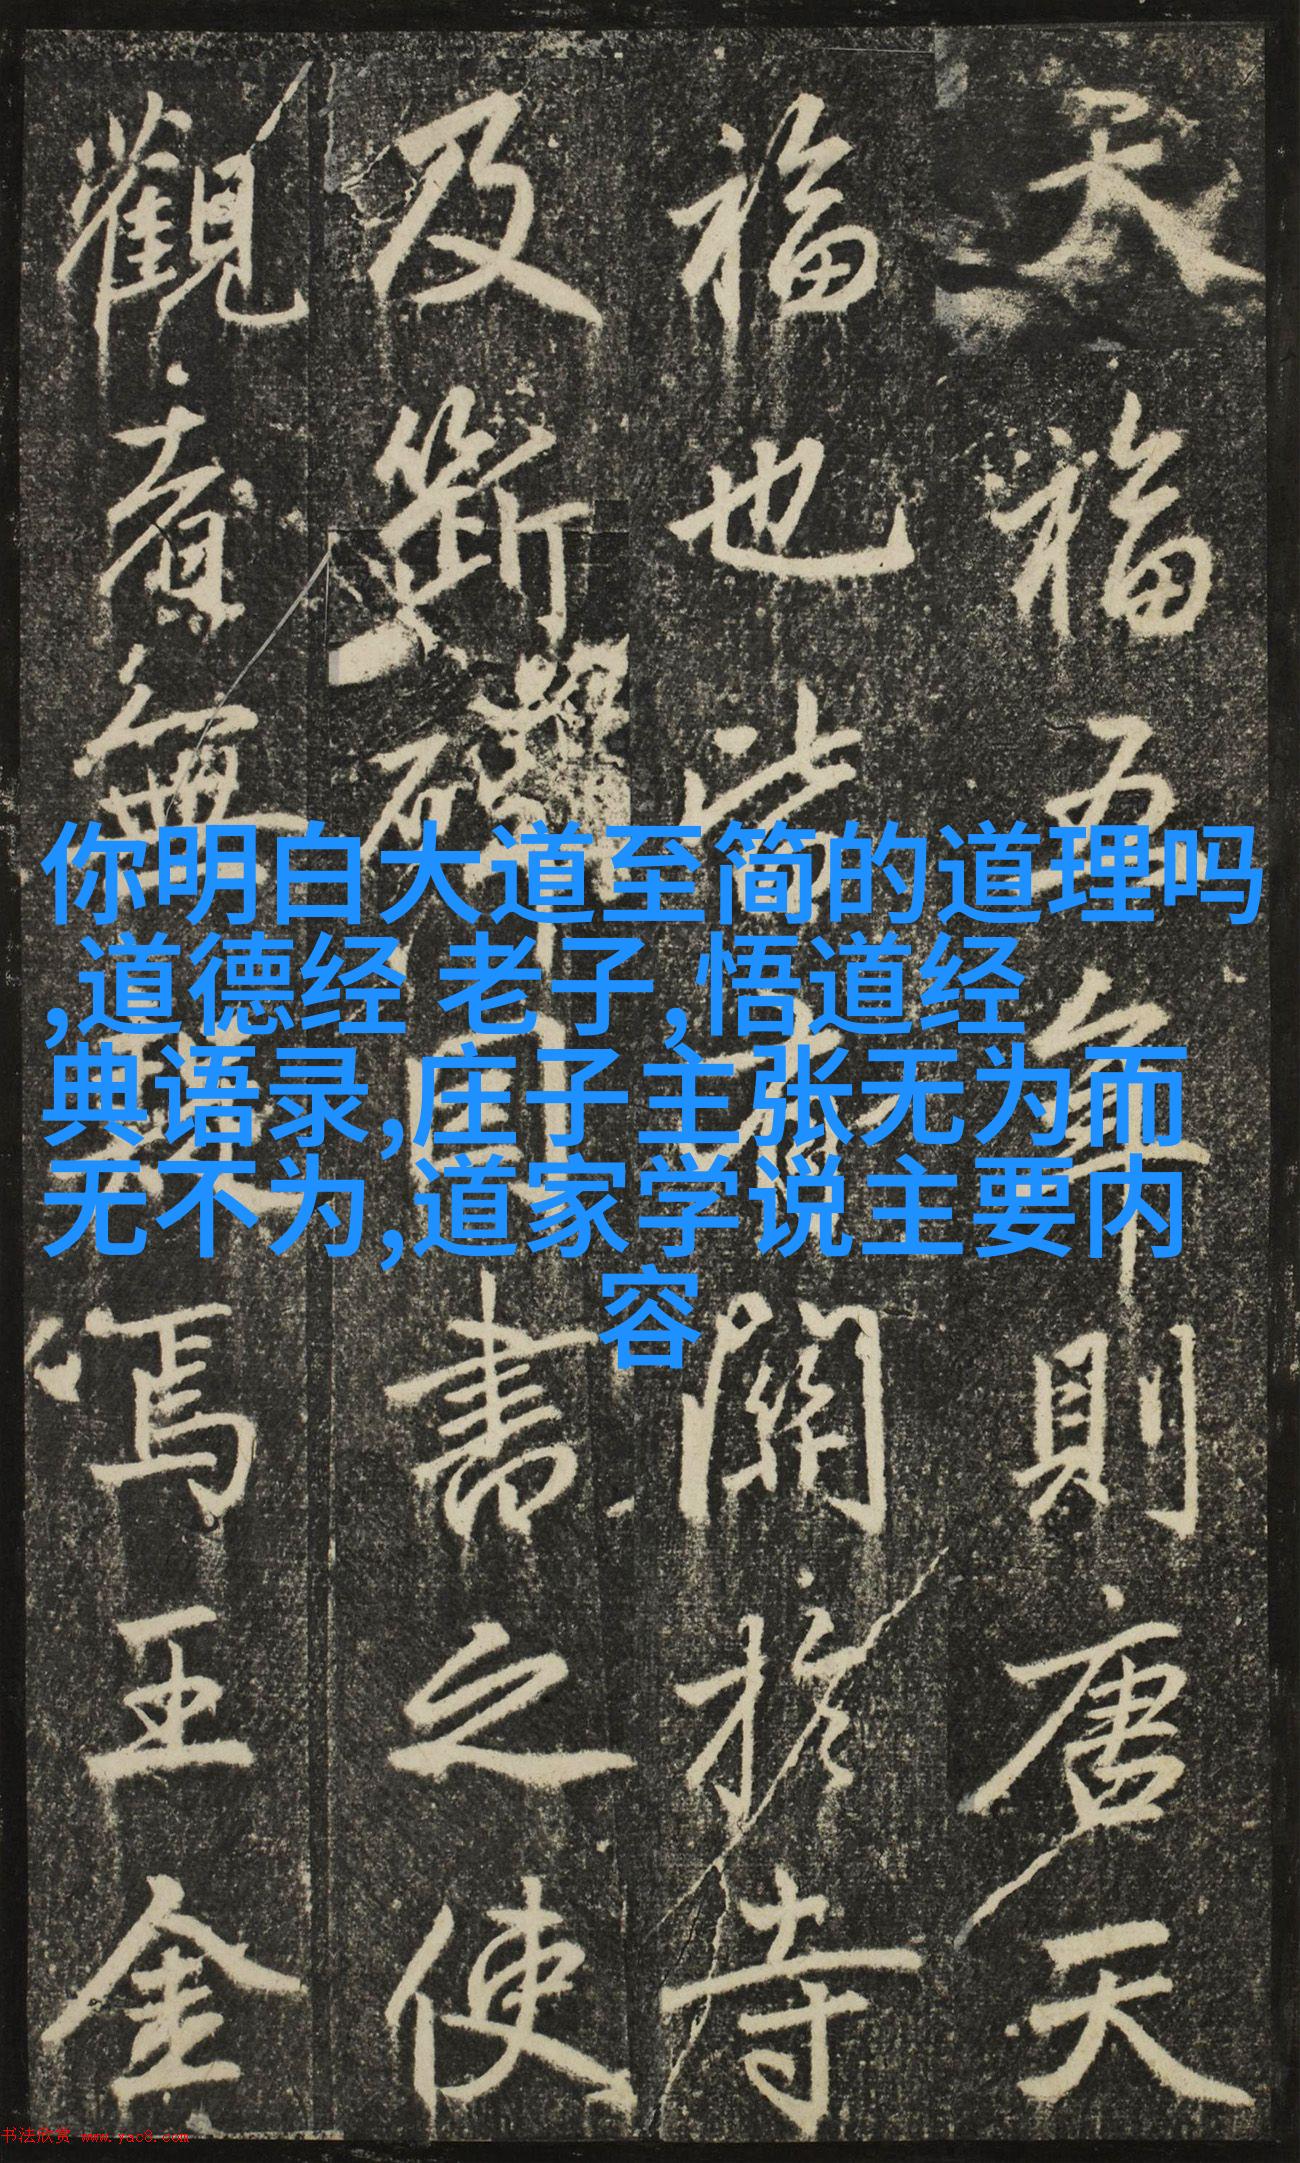 天福五年則唐天
福也
關於寺
及斷碑
書之使
觀者無疑焉王金
你明白大道至简的道理吗
,道德经 老子,悟道经
典语录,庄子主张无为而
无不为,道家学说主要内
容
书法欣赏 www.yac8.com